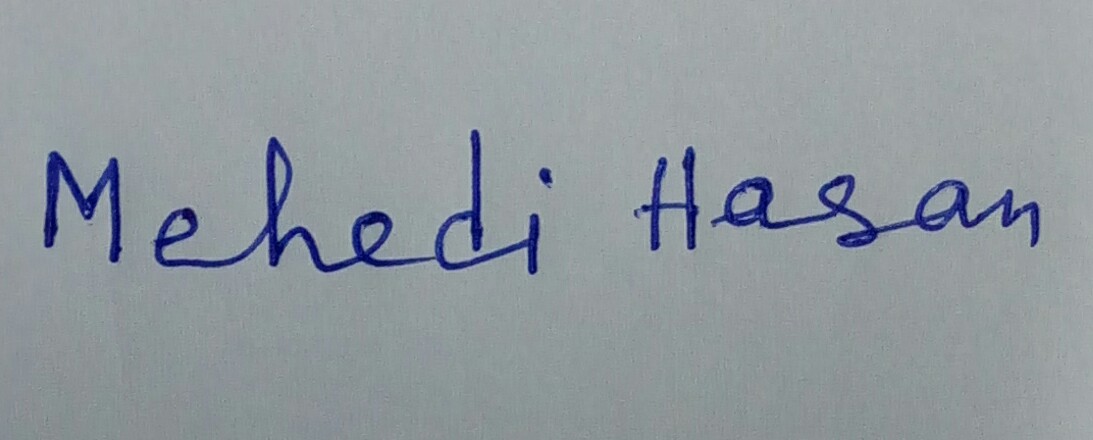 Mehedi Hasan